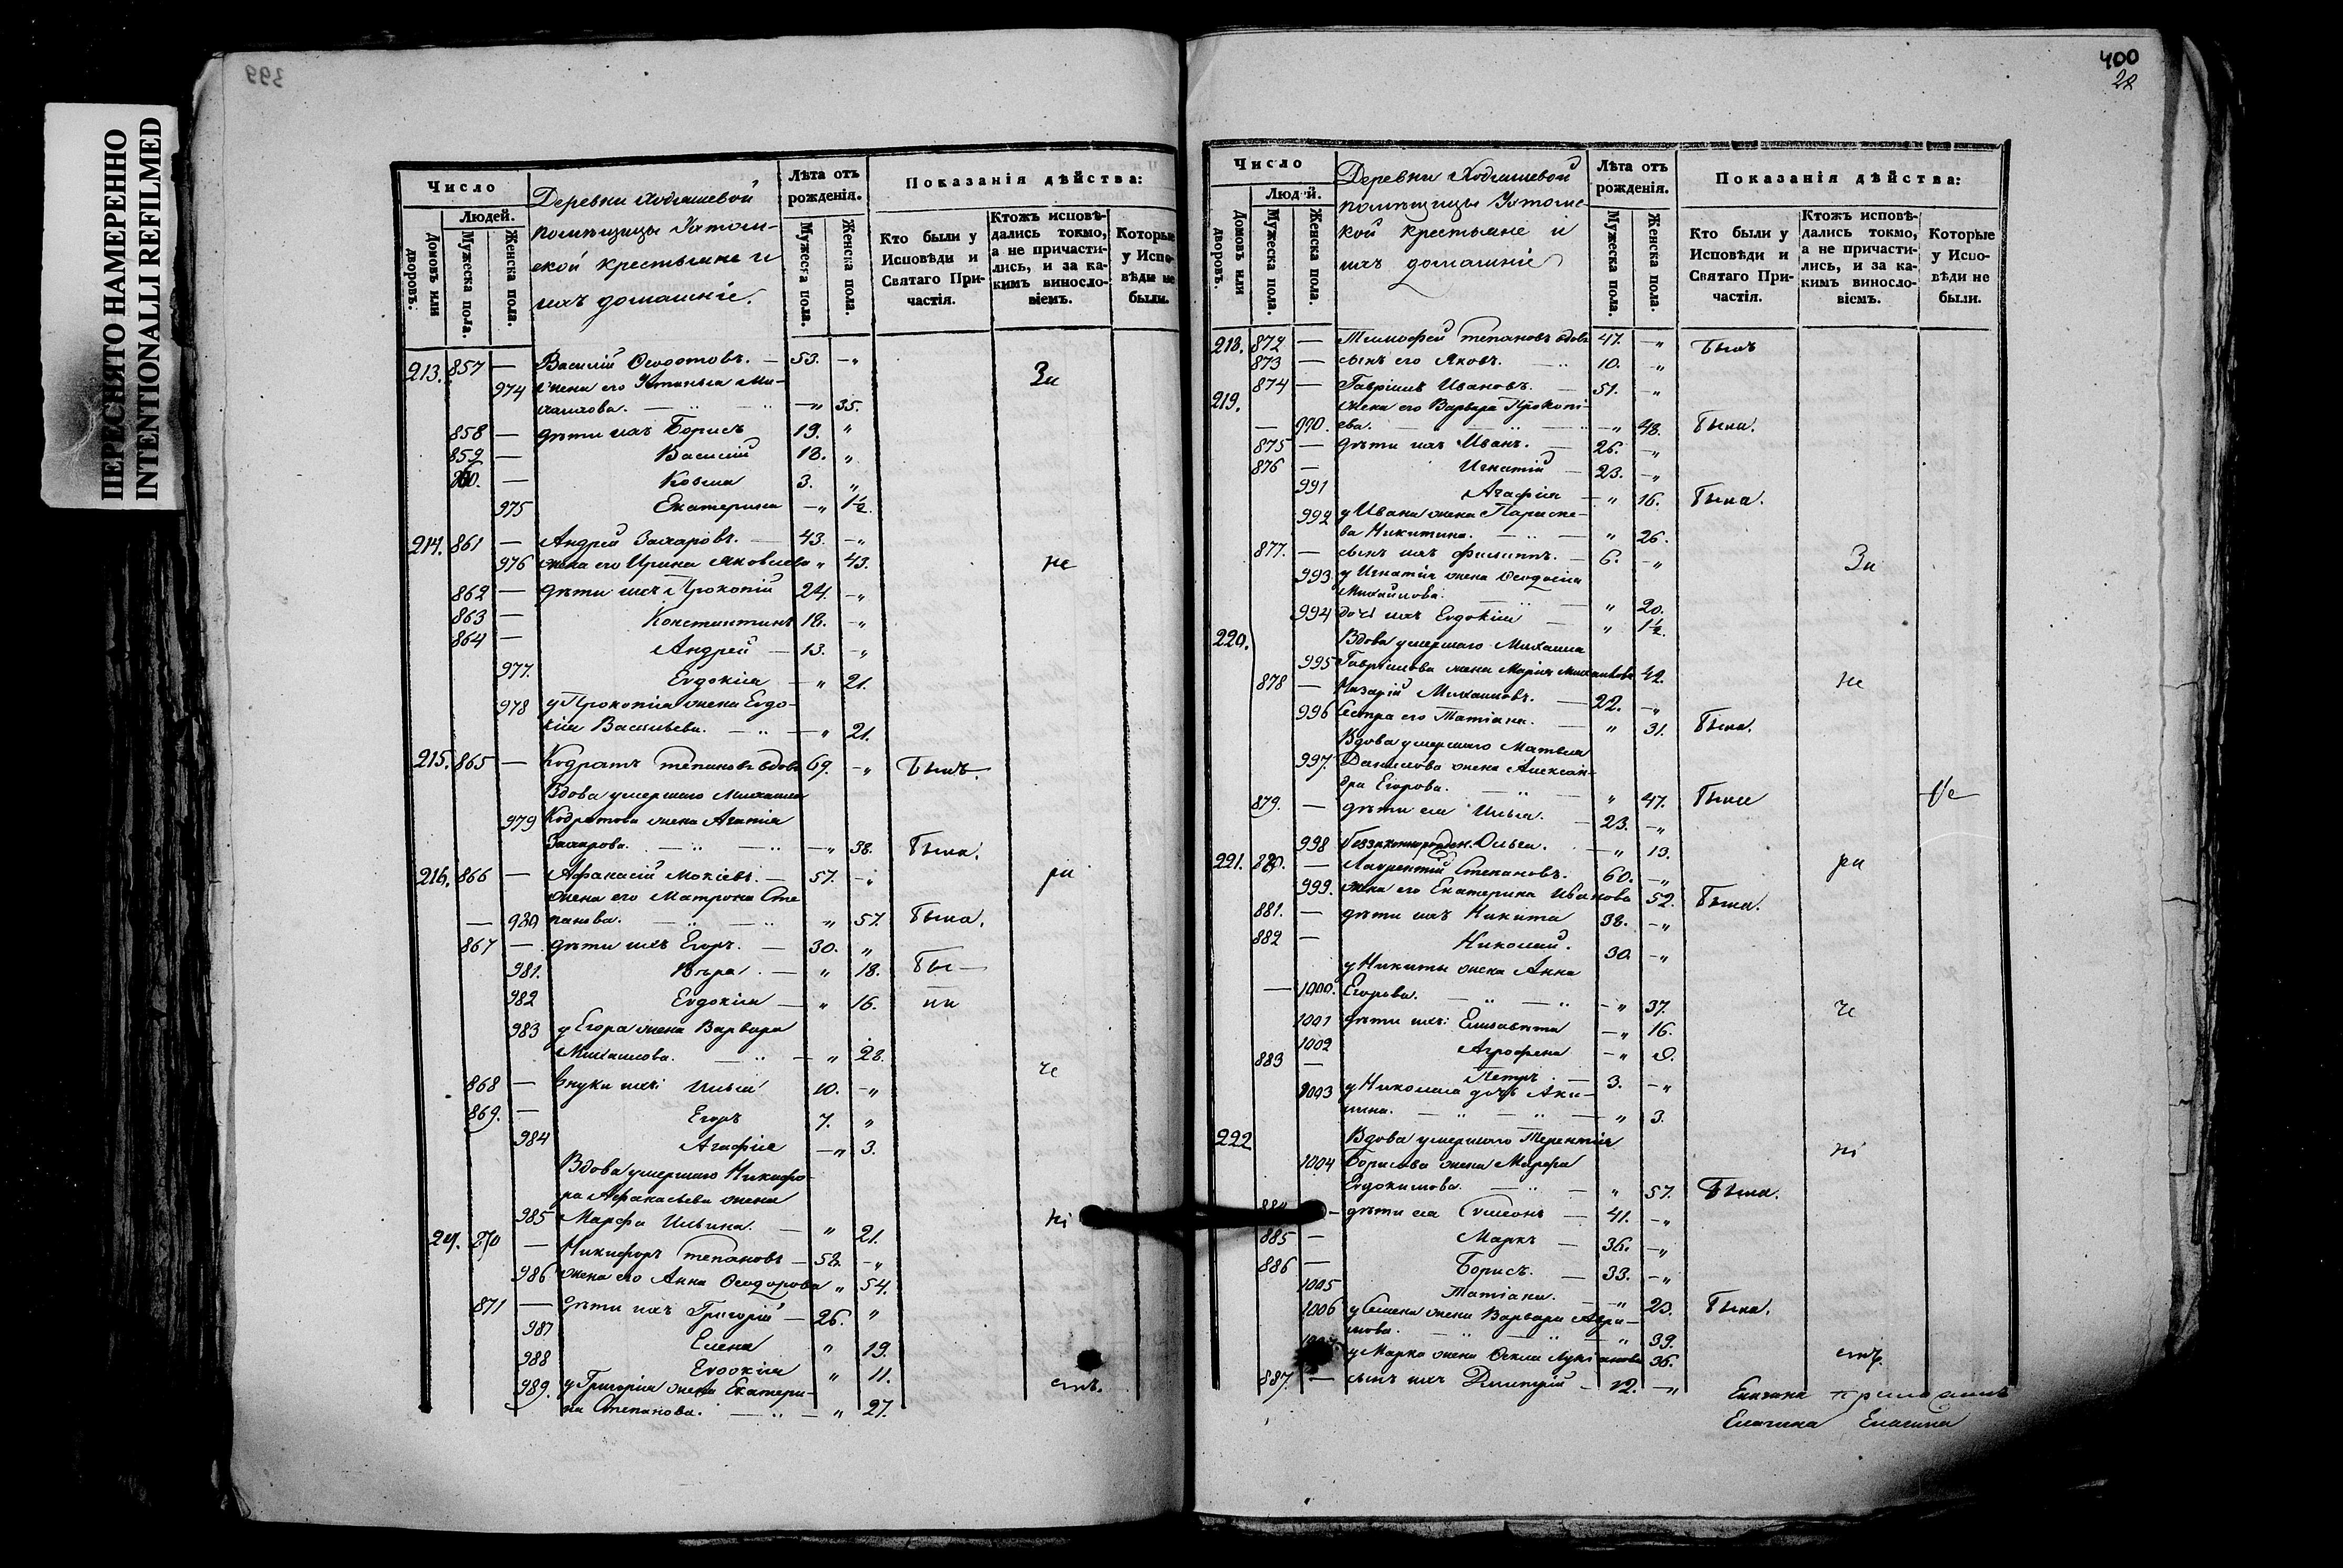 ПЕРЕСНЯТО НАМЕРЕННО
INTENTIONALLI REFILMED
399
Число
Людей.
Домовъ или дворовъ.
Мужеска пола.
Женска пола.
Деревни
помѣщицы
крестьяне и
ихъ домашніе.
Лѣта отъ рожденія.
Мужеска пола.
Женска пола.
Показанія дѣйства:
Кто были у Исповѣди и Святаго Причастія.
Ктожъ исповѣдались токмо, а не причастились, и за какимъ винословіемъ.
Которые у Исповѣди не были.
213. 857 — Василій Ѳеодотовъ. — 53. — „
974 жена его Устинья Ми-
хаилова. — „ 35. За
858 — дѣти ихъ Борисъ 19. „
859 — Василій 18. „
860. — Козма 3. „
975 Екатерина — „ 1½.
214. 861 — Андрей Захаровъ. — 43. — „
976 жена его Ирина Яковлева „ 43. не
862 — дѣти ихъ Прокопій 24. — „
863 — Константинъ 18. — „
864 — Андрей — 13. — „
977. Евдокія — „ 21.
978 у Прокопія жена Евдо-
кія Васильева. — „ 21.
215. 865 — Кодратъ Степановъ вдовъ 69. — „ Былъ
Вдова умершаго Михаила
979 Кодратова жена Агапія
Захарова. — „ 38. Была.
216. 866 — Афанасій Мокіевъ. — 57. — „ ра
жена его Матрона Сте
— 980 панова. „ 57. Была.
867 — дѣти ихъ Егоръ. — 30. „
981. Вѣра. — „ 18. Бы—
982 Евдокія — „ 16. ли
983 у Егора жена Варвара
Михаилова. — „ 28. че
868 — внуки ихъ: Илья 10. — „
869. — Егоръ 7. „
984 Агафія — „ 3.
Вдова умершаго Никифо-
ра Афанасьева жена
985 Марфа Ильина. — „ 21. ні
217. 870 — Никифоръ Степановъ — 58. — „
986 жена его Анна Ѳеодорова „ 54.
871 — дѣти ихъ Григорій — 26. „
987 Елена „ 19.
988 Евдокія „ 11.
989. у Григорія жена Екатери-
на Степанова. — „ 27. емъ.
400
28
Число
Людей.
Домовъ или дворовъ.
Мужеска пола.
Женска пола.
Деревни
помѣщицы
кой крестьяне и
ихъ домашніе
Лѣта отъ рожденія.
Мужеска пола.
Женска пола.
Показанія дѣйства:
Кто были у Исповѣди и Святаго Причастія.
Ктожъ исповѣдались токмо, а не причастились, и за какимъ винословіемъ.
Которые у Исповѣди не были.
218. 872 — Тимофей Степановъ вдовъ 47. — „ Былъ
873 — сынъ его Яковъ. 10. — „
219. 874 — Гавріилъ Ивановъ. — 51. — „
жена его Варвара Прокопі-
— 990. ева. — „ 48. Была.
875 — дѣти ихъ Иванъ. — 26. — „
876 — Игнатій — 23. — „
991 Агафія — „ 16. Была.
992 у Ивана жена Параске-
ва Никитина. — „ 26.
877. — сынъ ихъ Филиппъ. — 6. — „ За
993 у Игнатія жена Ѳеодосія
Михаилова. — „ 20.
994 дочь ихъ Евдокія — „ 1½.
220. Вдова умершаго Михаила
995 Гавріилова жена Марія Михаилова 42.
878 — Назарій Михаиловъ. — 22. — „ не
996 Сестра его Татіана. — „ 31. Была.
Вдова умершаго Матвея
997. Данилова жена Алексан-
дра Егорова. — „ 47. Была
879. — дѣти ея Илья. — 23. — „
998 незаконорожден. Ольга. — „ 13.
221. 880. — Лаврентій Степановъ. 60. — „ ра
999. жена его Екатерина Иванова 52. Была.
881. — дѣти ихъ Никита 38. — „
882 — Николай. 30. — „
у Никиты жена Анна
— 1000. Егорова. — „ 37. че
1001 дѣти ихъ: Елисавета — „ 16.
1002 Агрофена — „ 9.
883 — Петръ — 3. — „
1003 у Николая дочь Аку-
лина. — „ 3.
222 Вдова умершаго Терентія
1004 Борисова жена Марфа ні
Евдокимова. — „ 57. Была.
884 — дѣти ея Симеонъ — 41. — „
885 — Маркъ — 36. — „
886 — Борисъ. — 33. — „
1005 Татіана. — „ 20. Была.
1006 у Семена жена Варвара
— „ 39.
у Марка жена Ѳекла 36. емъ.
887. — сынъ ихъ Димитрій — 12. — „